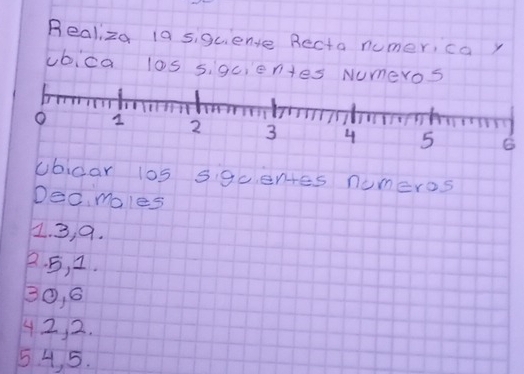 Realiza la siguiente Recta numerica y
ubica los siguientes Numeros
0 1 2 3 4 5 6
Ubicar los siguientes numeros
Decimales
1. 3,9.
2. 5,1.
3 0,6
4 2,2.
5 4,5.